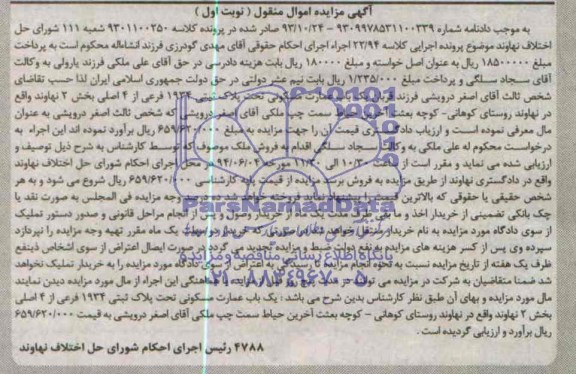 آگهی مزایده اموال منقول ( نوبت اول )
به موجب دادنامه شماره ۹۳۰۹۹۷۸۵۳۱۱۰۰۳۳۹ - ۹۳/۱۰/۲۴ صادر شده در پرونده کلاسه ۹۳۰۱۱۰۰۲۵۰ شعبه ۱۱۱ شورای حل
اختلاف نهاوند موضوع پرونده اجرایی کلاسه ۲۲/۹۴ اجراء اجرای احکام حقوقی آقای مهدی گودرزی فرزند انشااله محکوم است به پرداخت
مبلغ ۱۸۵۰۰۰۰۰ ریال به عنوان اصل خواسته و مبلغ ۱۸۰۰۰۰ ریال بابت هزینه دادرسی در حق آقای علی ملکی فرزند یارولی به وکالت
آقای سجاد سلگی و پرداخت مبلغ ۱/۲۳۵/۰۰۰ ریال بابت نیم عشر دولتی در حق دولت جمهوری اسلامی ایران لذا حسب تقاضای
شخص ثالث آقای اصغر درویشی فرزند عمارت مسکونی تحت پلاک ثبتی ۱۹۳۴ فرعی از ۴ اصلی بخش ۲ نهاوند واقع
در نهاوند روستای کوهانی- کوچه بعثت سمت چپ ملکی آقای اصغر درویشی که شخص ثالث اصغر درویشی به عنوان
مال معرفی نموده است و ارزیاب دادگستری قیمت آن را جهت مزایده به مبلغ ۶۵۹/۶۲۰/۰۰۰ ریال برآورد نموده اند این اجراء به
درخواست محکوم له علی ملکی به وکالت سجاد سلگی اقدام به فروش ملک موصوف که توسط کارشناس به شرح ذیل توصیف و
ارزیابی شده می نماید و مقرر است از ساعت ۱۰/۳۰ الی ۱۱/۳۰ مورخه ۹۴/۰۶/۰۴ در محل اجرای احکام شورای حل اختلاف نهاوند
واقع در دادگستری نهاوند از طریق مزایده به فروش برسد مزایده از قیمت پایه کارشناسی ۶۵۹/۶۲۰/۰۰۰ ریال شروع می شود و به هر
شخص حقیقی یا حقوقی که بالاترین قیمت را پیشنهاد نماید فروخته خواهد شد ده درصد وجه مزایده فی المجلس به صورت نقد یا
چک بانکی تضمینی از خریدار اخذ و ما بقی ماه از خریدار وصول و پس از انجام مراحل قانونی و صدور دستور تملیک
از سوی دادگاه مورد مزایده به نام خریدار منتقل خواهد شد در صورتی که خریدار در مهلت یک ماه مقرر تهیه وجه مزایده را نپردازد
سپرده وی پس از کسر هزینه های مزایده به نفع دولت ضبط و مزایده تجدید می گردد در صورت ایصال اعتراض از سوی اشخاص ذینفع
ظرف یک هفته از تاریخ مزایده نسبت به نحوه انجام مزایده تا رسیدگی به اعتراض از سوی دادگاه مورد مزایده را به خریدار تملیک نخواهد
شد ضمنا متقاضیان به شرکت در مزایده می توانند در مدت پنج روز قبل از مزایده با هماهنگی این اجراء از مال مورد مزایده دیدن نمایند
مال مورد مزایده و بهای آن طبق نظر کارشناس بدین شرح می باشد : یک باب عمارت مسکونی تحت پلاک ثبتی ۱۹۳۴ فرعی از ۴ اصلی
بخش ۲ نهاوند واقع در نهاوند روستای کوهانی - کوچه بعثت آخرین حیاط سمت چپ ملکی آقای اصغر درویشی به قیمت ۶۵۹/۶۲۰/۰۰۰
ریال برآورد و ارزیابی گردیده است .
۴۷۸۸ رئیس اجرای احکام شورای حل اختلاف نهاوند
ParsNamadData
پایگاه اطلاع رسانی مناقصه و مزایده
۰۲۱-۸۸۳۴۹۶۷۰-۵